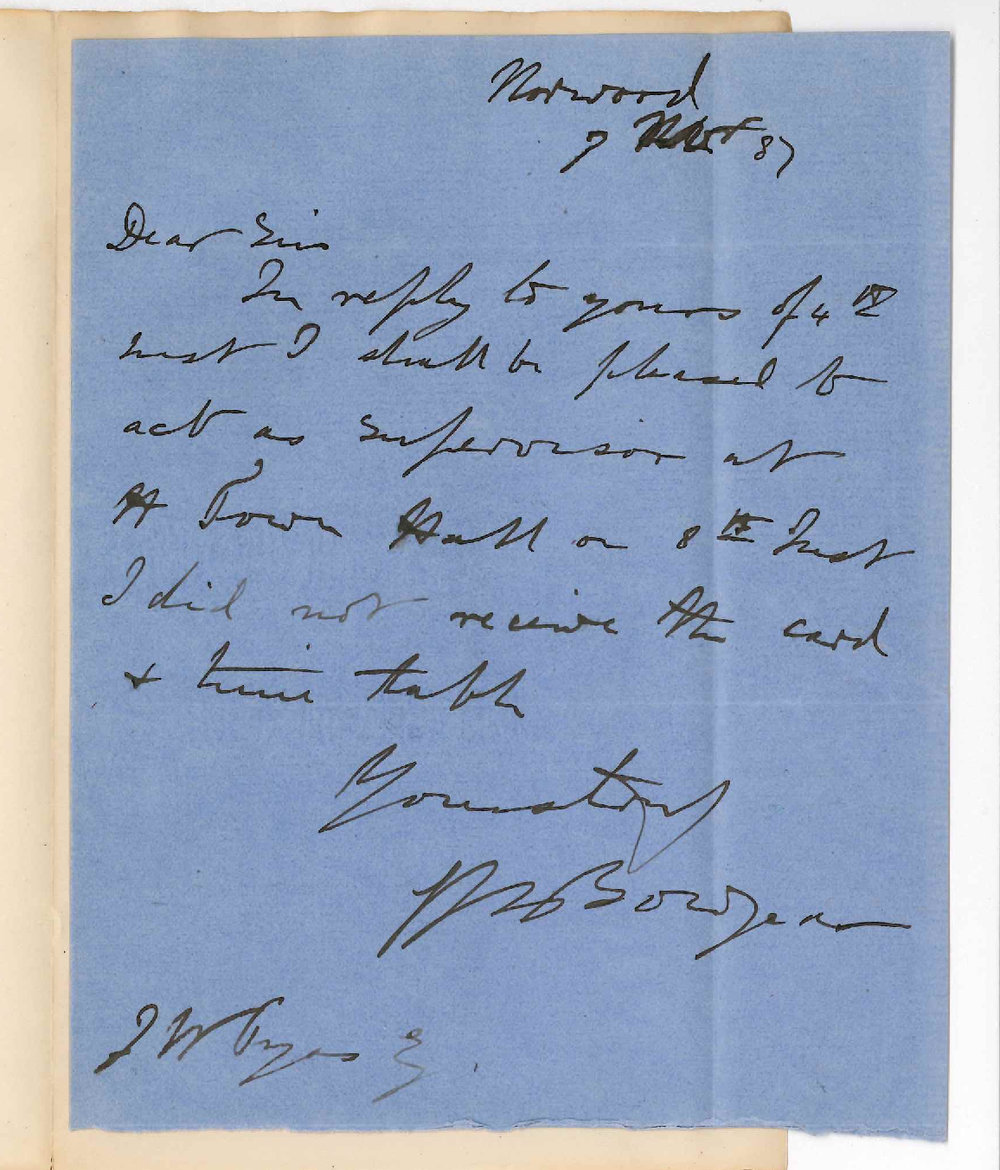 Norwood
7 Nov 87
Dear Sir
In reply to yours of 4th
inst I shall be pleased to
act as supervisor at
H Town Hall on 8th Inst
I did not receive the card
& time table
Yours truly
Bowyear
J W